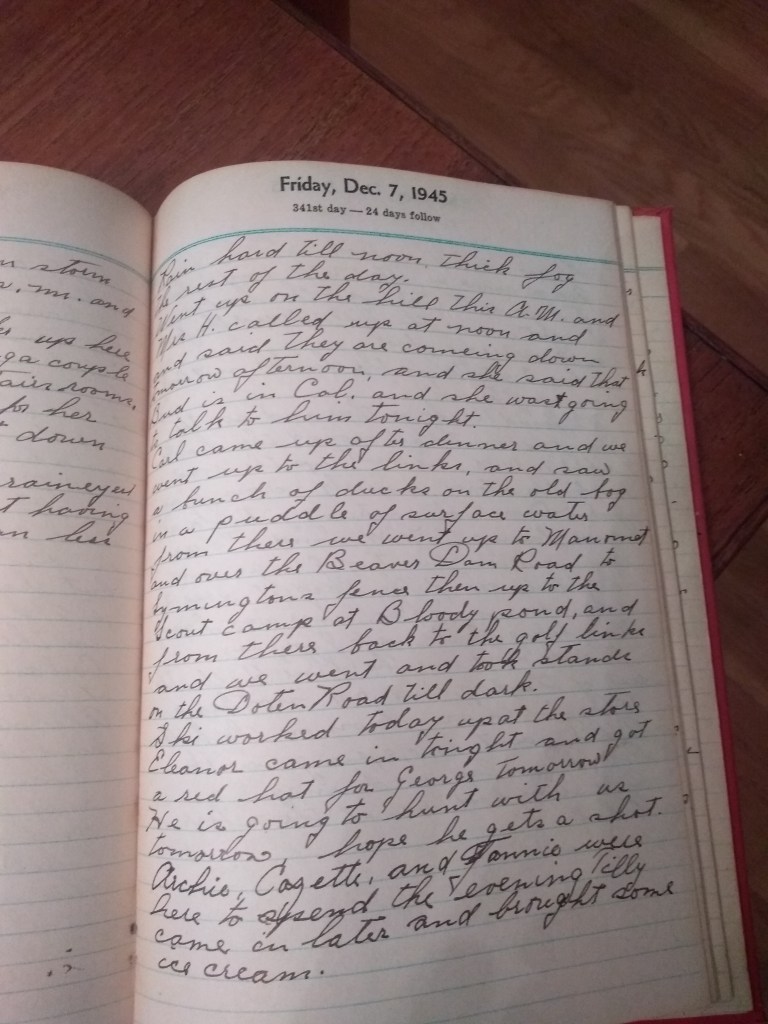 m storm
m. and
up here
a couple
rooms.
for her
down
rain eyed
t having
Friday, Dec. 7, 1945
341st day — 24 days follow
Rain hard till noon, thick fog
the rest of the day.
Went up on the hill this A.M. and
Mrs H. called up at noon and
and said they are comeing down
tomorrow afternoon, and she said that
Bud is in Cal. and she was going
to talk to him tonight.
Carl came up after dinner and we
went up to the links, and saw
a bunch of ducks on the old bog
in a puddle of surface water
from there we went up to Manomet
and over the Beaver Dam Road to
bymingtons fence then up to the
Scout camp at Bloody pond, and
from there back to the golf links
and we went and took stands
on the Doten Road till dark.
Ski worked today up at the store
Eleanor came in tonight and got
a red hat for George tomorrow
He is going to hunt with us
tomorrow, hope he gets a shot.
Archie, Cozette, and Fannie were
here to spend the evening Tilly
came in later and brought some
ice cream.